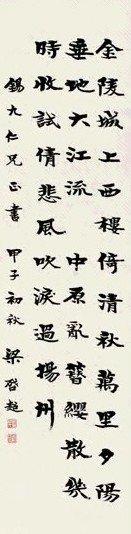 金陵城上西樓倚清秋萬里夕陽
垂地大江流 中原亂簪纓散幾
時收試倩悲風吹淚過揚州
錫九仁兄正書 甲子初秋 梁啓超